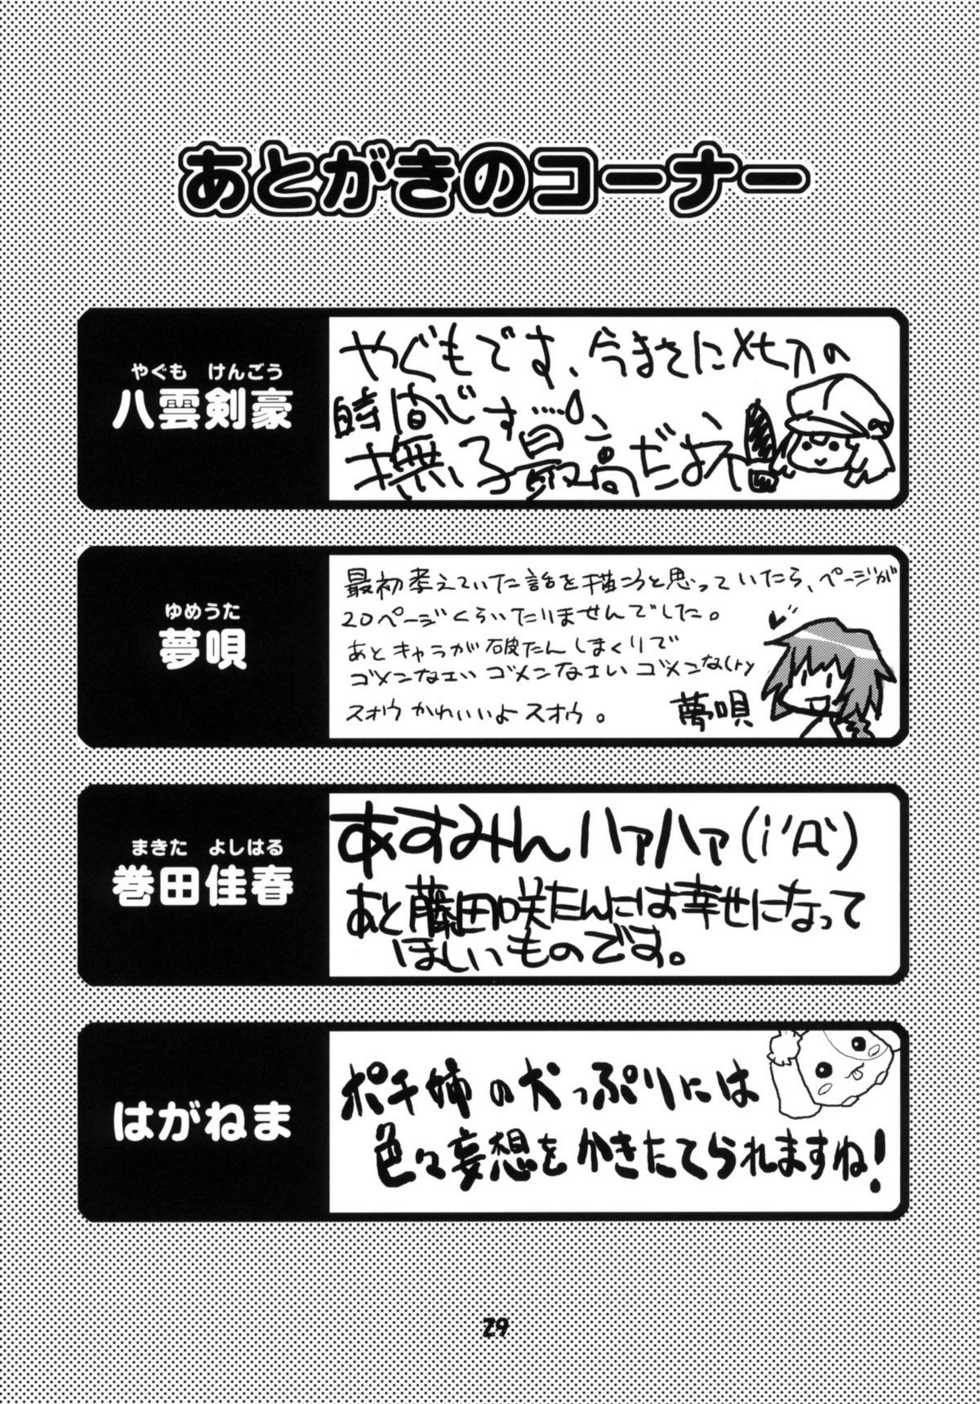 あとがきのコーナー
やぐも けんごう
八雲剣豪
やぐもです、今まさに〆切の
時間です……
撫子最高だよね
ゆめうた
夢唄
最初考えていた話を描こうと思っていたら、ページが
20ページくらいたりませんでした。
あとキャラが破たんしまくりで
ゴメンなエい ゴメンなエい ゴメンな(ry
スオウ かわいいよ スオウ。
夢唄
まきた よしはる
巻田佳春
あすみん ハァハァ(;´Д`)
あと藤田咲たんには幸せになって
ほしいものです。
はがねま
ポチ姉の犬っぷりには
色々妄想をかきたてられますね!
29